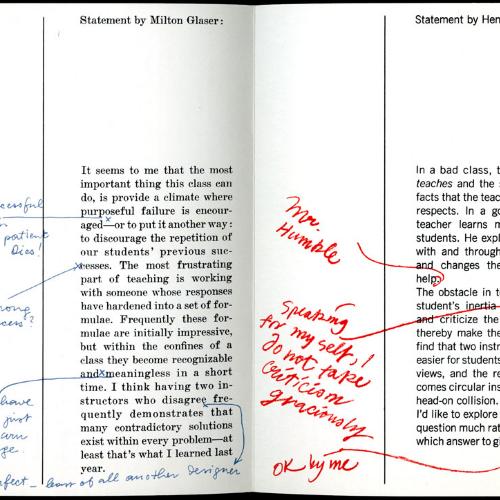 Statement by Milton Glaser:
It seems to me that the most
important thing this class can
do, is provide a climate where
purposeful failure is encour-
aged—or to put it another way:
to discourage the repetition of
our students' previous suc-
cesses. The most frustrating
part of teaching is working
with someone whose responses
have hardened into a set of for-
mulae. Frequently these for-
mulae are initially impressive,
but within the confines of a
class they become recognizable
and meaningless in a short
time. I think having two in-
structors who disagree fre-
quently demonstrates that
many contradictory solutions
exist within every problem—at
least that's what I learned last
year.
patient
Dies!
have
just
least of all another designer
Mr.
Humble
Speaking
for my self, I
do not take
criticism
graciously
OK by me
Statement by Hen
In a bad class, t
teaches and the s
facts that the teac
respects. In a go
teacher learns m
students. He expl
with and through
and changes the
help.
The obstacle in te
student's inertia
and criticize the
thereby make the
find that two instr
easier for students
views, and the re
comes circular ins
head-on collision.
I'd like to explore
question much rat
which answer to gi